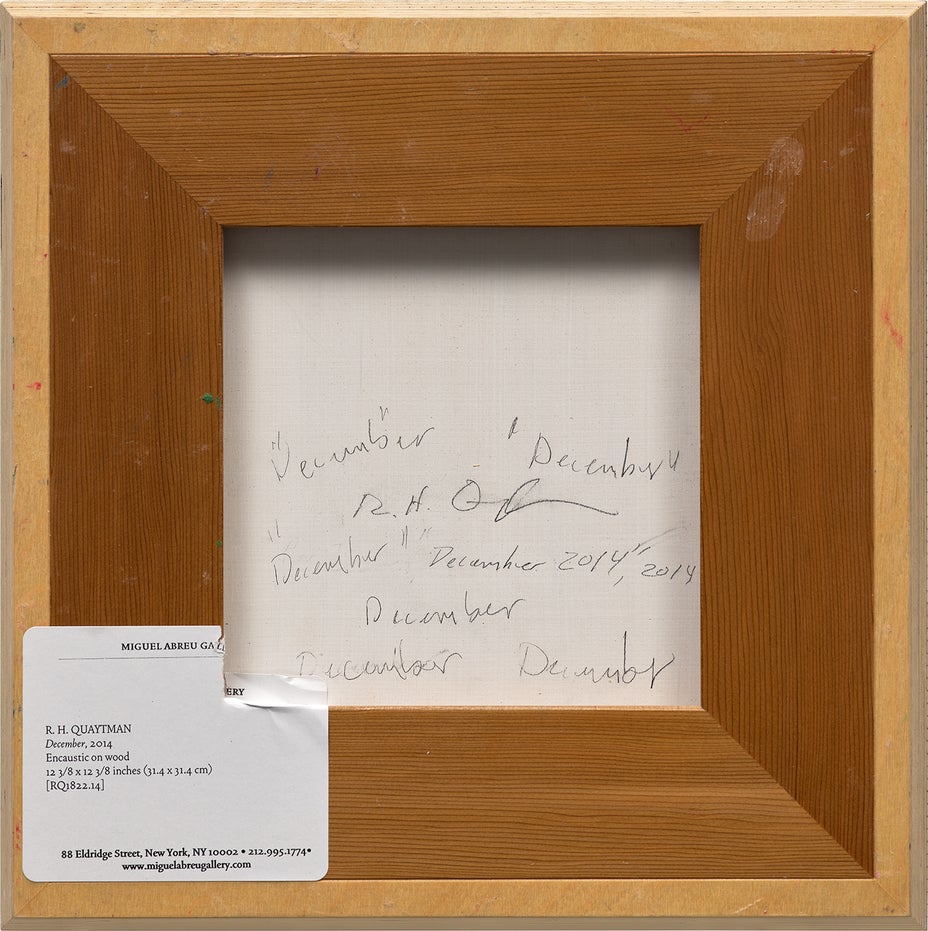 "December" "December"
R. H. Q
"December" "December 2014", 2014
December
December December
MIGUEL ABREU GALLERY
R. H. QUAYTMAN
December, 2014
Encaustic on wood
12 3/8 x 12 3/8 inches (31.4 x 31.4 cm)
[RQ1822.14]
88 Eldridge Street, New York, NY 10002 • 212.995.1774•
www.miguelabreugallery.com